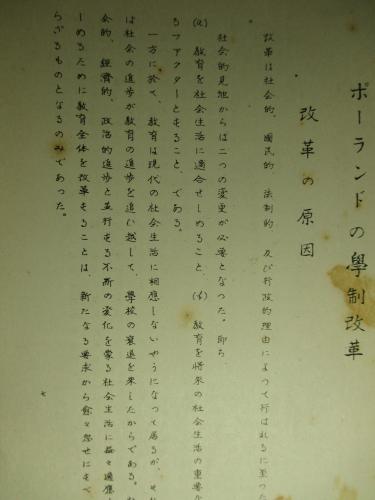 ポーランドの學制改革
改革の原因
改革は社会的、國民的、法制的、及び行政的理由によって行はれるに至つた
社会的見地からは二つの変更が必要となつた。即ち
(a) 教育を社会生活に適合せしめること、(b) 教育を将来の社会生活の重要な
るファクターとすること、である。
一方に於て、教育は現代の社会生活に相應しないやうになつて居るが、それ
は社会の進歩が教育の進歩を追い越して、學校の衰退を来したからである。
会的、経済的、政治的進歩と並行する不断の変化を蒙る社会生活に益々適應
しめるために教育全体を改革することは、新たなる要求から愈々忽せにすべ
らざるものとなるのみであつた。